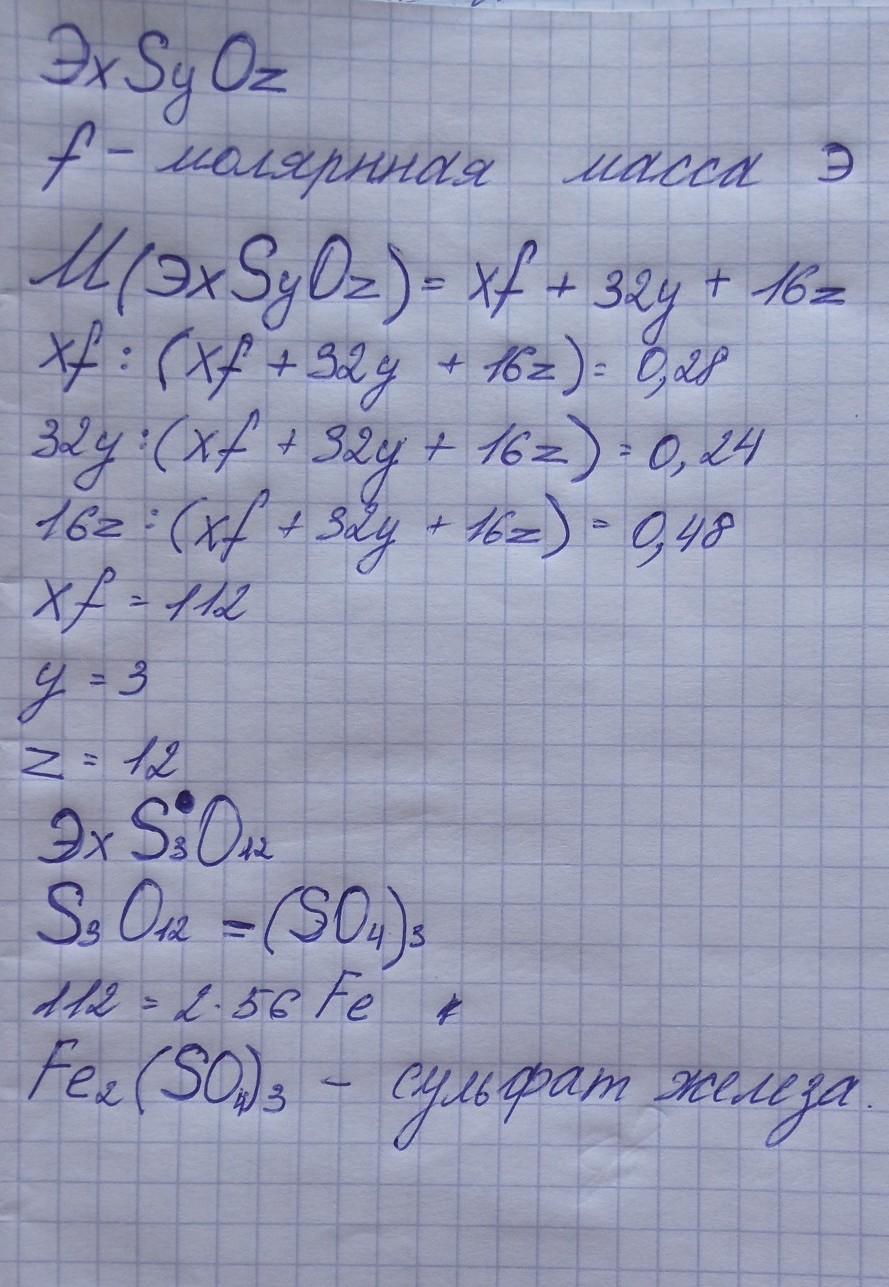 ЭxSyOz
f - молярнная масса Э
M(ЭxSyOz) = xf + 32y + 16z
xf : (xf + 32y + 16z) = 0,28
32y : (xf + 32y + 16z) = 0,24
16z : (xf + 32y + 16z) = 0,48
xf = 112
y = 3
z = 12
Эx S₃O₁₂
S₃O₁₂ = (SO₄)₃
112 = 2·56 Fe
Fe₂(SO₄)₃ - сульфат железа.